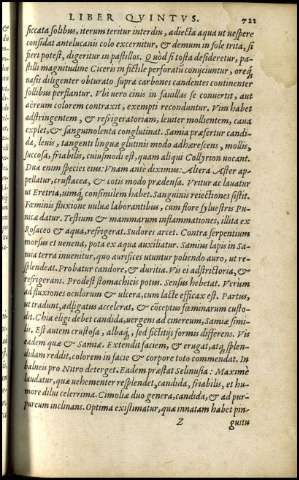 LIBER QVINTVS. 722
siccata solibus, iterum teritur interdiu, adiecta aqua ut uespere
consideat antelucanis colo excernitur, & demum in sole trita, si
fieri potest, digeritur in pastillos. Quod si tosta desideretur, pa-
stilli magnitudine Ciceris in fictile perforatũ conijciuntur, oreq́;
nasti diligenter obturato supra carbones candentes continenter
follibus perflantur. Vbi uero cinis in fauillas se conuerit, aut
aëreum colorem contraxit, exempti reconduntur. Vim habet
adstringentem, & refrigeratoriam, leuiter mollientem, caua
explet, & sanguinolenta conglutinat. Samia præfertur candi-
da, leuis, tangenti lingua glutinis modo adhærescens, mollis,
succosa, friabilis, cuiusmodi est, quam aliqui Collyrion uocant.
Dua enim species eius: Vnam ante diximus: Altera Aster ap-
pellatur, crustacea, & cotis modo prædensa. Vritur ac lauatur
ut Eretria, uimq́; consimilem habet. Sanguinis reiectiones sistit.
Fœminis fluxione uuluæ laborantibus, cum flore syluestris Pu-
nicæ datur. Testium & mammarum inflammationes, illita ex
Rosaceo & aqua, refrigerat. Sudores arcet. Contra serpentium
morsus et uenena, pota ex aqua auxiliatur. Samius lapis in Sa-
mia terra inuenitur, quo aurifices utuntur poliendo auro, ut re-
splendeat. Probatur candore, & duritia. Vis ei adstrictoria, &
refrigerans. Prodest stomachicis potus. Sensus hebetat. Verum
ad fluxiones oculorum & ulcera, cum lacte efficax est. Partus,
ut tradunt, adligatus accelerat, & conceptus fœminarum custo-
dit. Chia eligi debet candida, uergens ad cinereum, Samiæ simi-
lis. Est autem crustosa, albaq́;, sed fictitijs formis differens. Vis
eadem quæ & Samiæ. Extendit faciem, & erugat, atq́; splen-
didam reddit, colorem in facie & corpore toto commendat. In
balneis pro Nitro deterget. Eadem præstat Selinusia: Maximè
laudatur, quæ uehementer resplendet, candida, friabilis, et hu-
more dilui celerrima. Cimolia duo genera, candida, & ad pur-
pureum inclinans. Optima existimatur, quæ innatam habet pin-
Z guitu